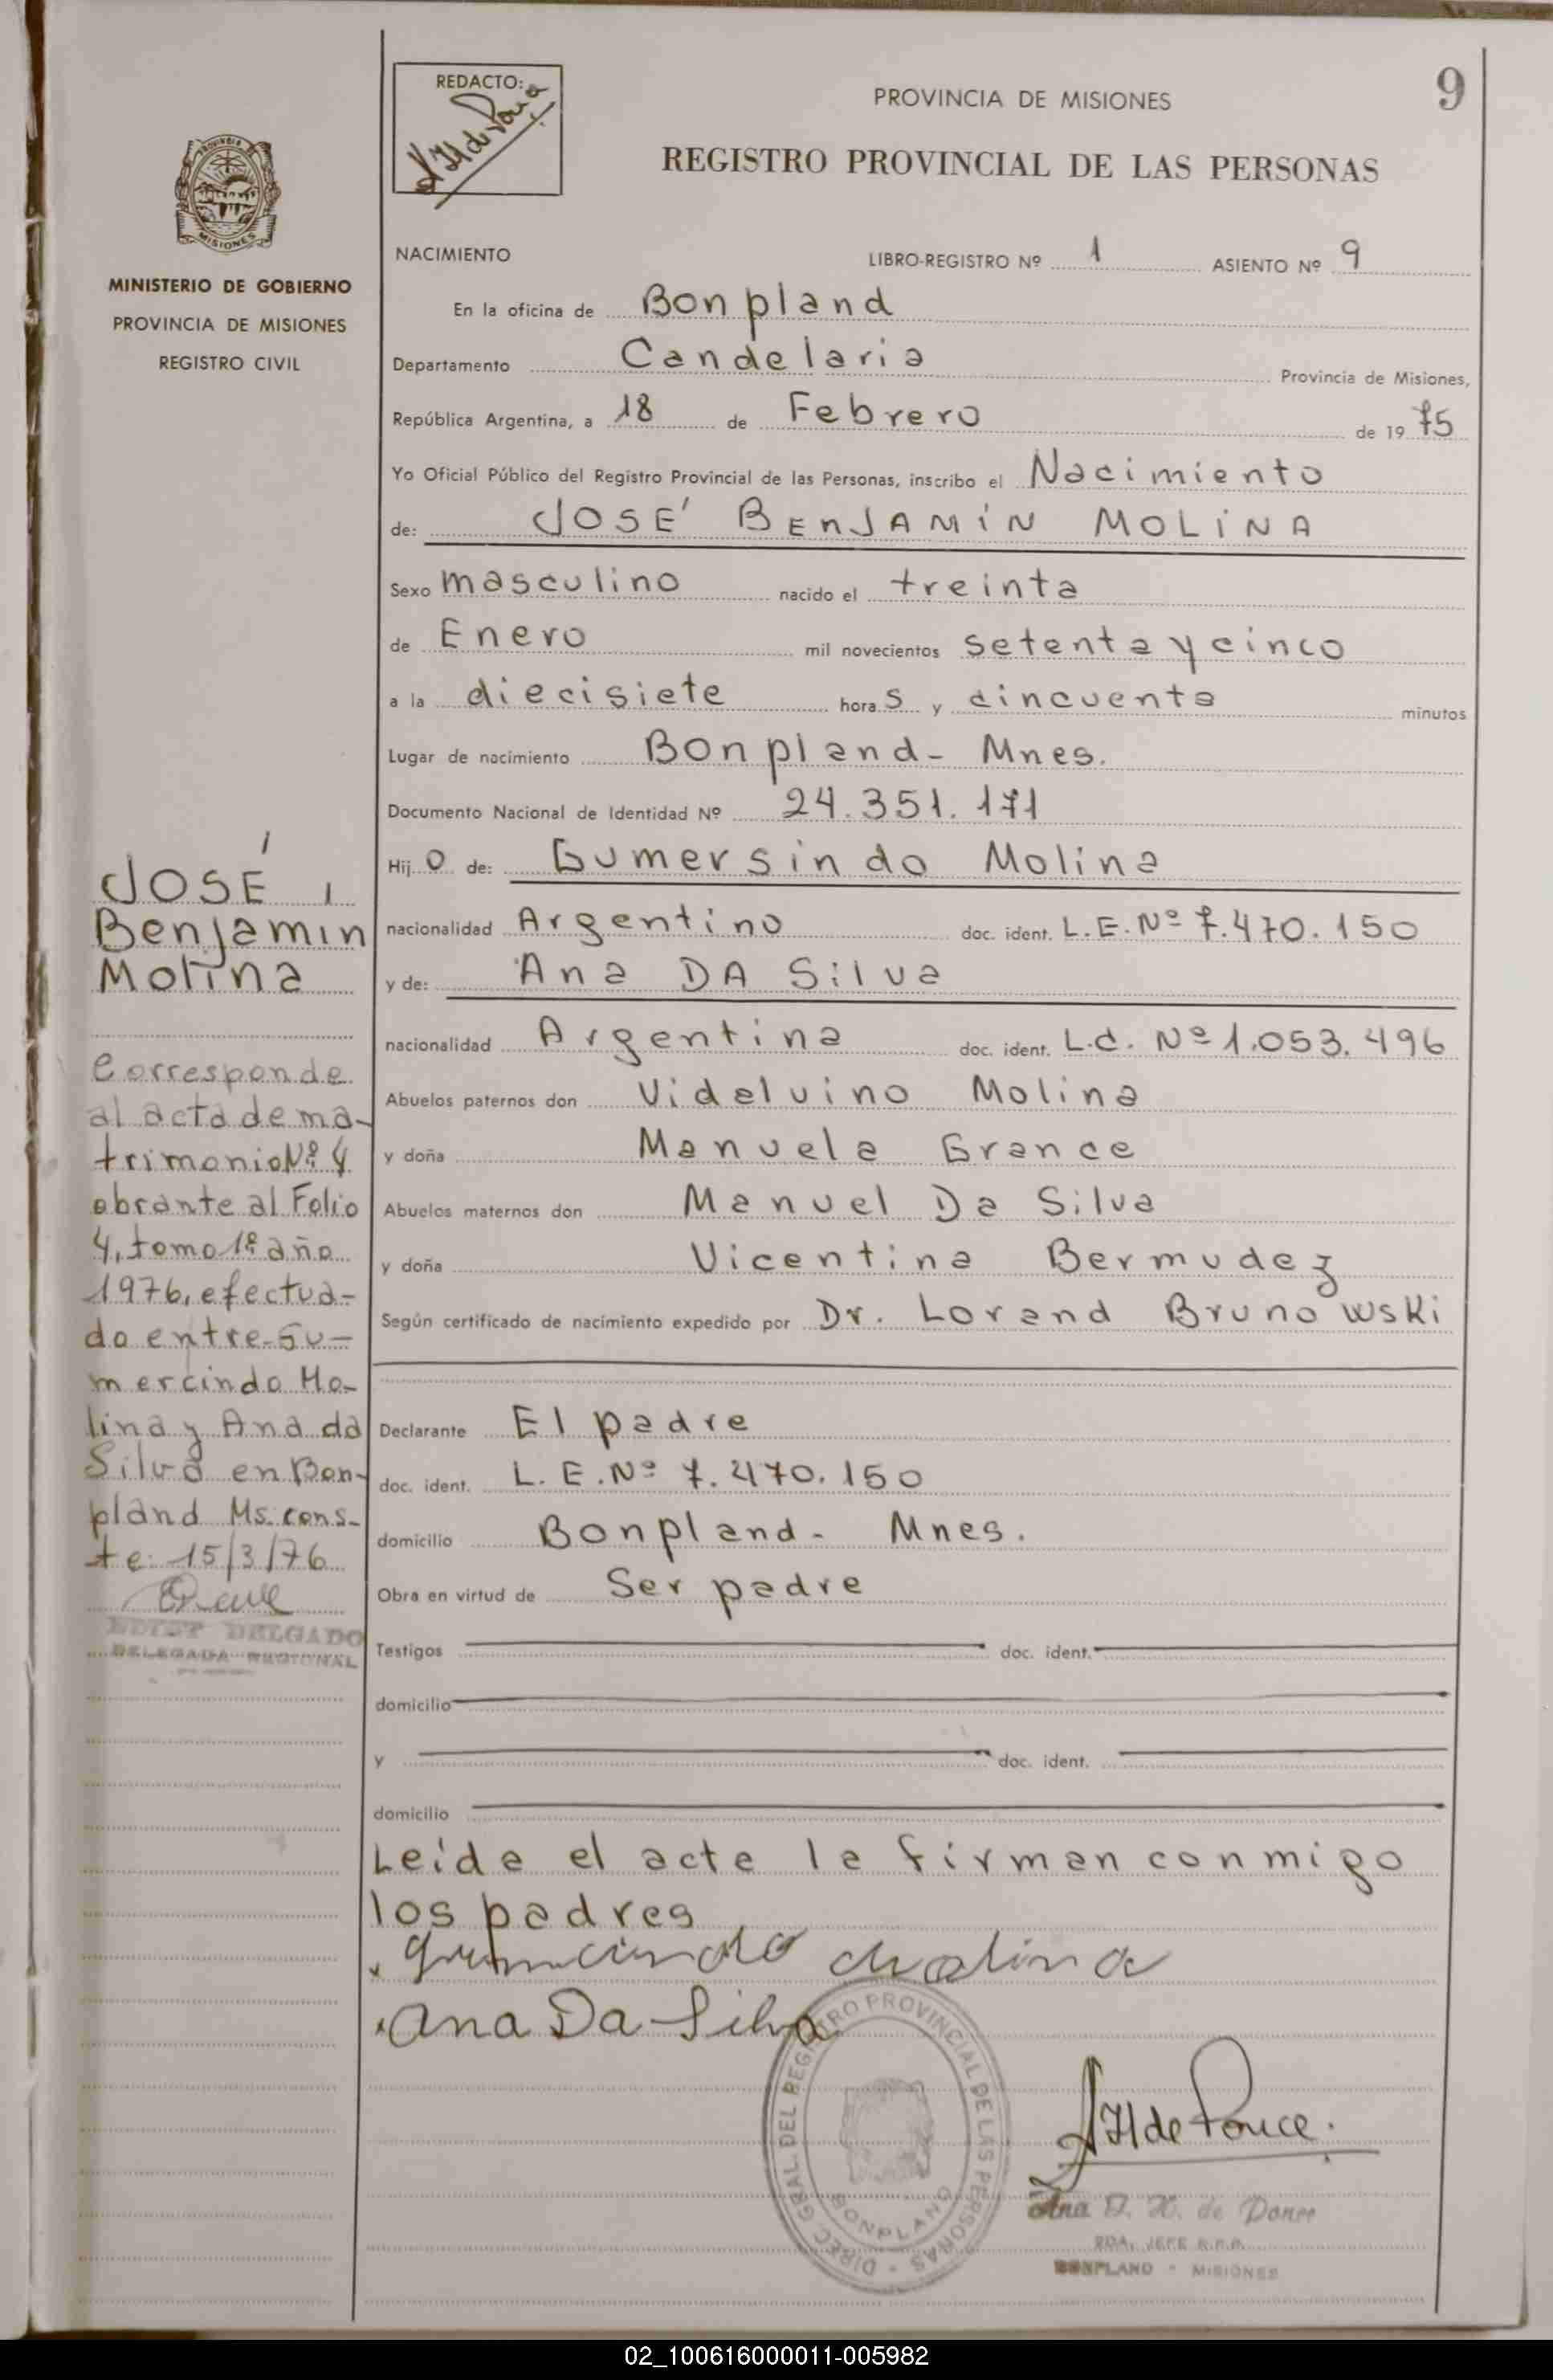 9
REDACTO:
PROVINCIA DE MISIONES
REGISTRO PROVINCIAL DE LAS PERSONAS
MISIONES
MINISTERIO DE GOBIERNO
PROVINCIA DE MISIONES
REGISTRO CIVIL
NACIMIENTO LIBRO-REGISTRO Nº 1 ASIENTO Nº 9
En la oficina de Bonpland
Departamento Candelaria Provincia de Misiones,
República Argentina, a 18 de Febrero de 19 75
Yo Oficial Público del Registro Provincial de las Personas, inscribo el Nacimiento
de: JOSÉ BENJAMÍN MOLINA
Sexo masculino nacido el treinta
de Enero mil novecientos setenta y cinco
a la diecisiete hora s y cincuenta minutos
Lugar de nacimiento Bonpland - Mnes.
Documento Nacional de Identidad Nº 24.351.171
Hij o de: Gumersindo Molina
nacionalidad Argentino doc. ident. L.E. Nº 7.470.150
y de: Ana DA Silva
nacionalidad Argentina doc. ident. L.C. Nº 1.053.496
Abuelos paternos don Videlvino Molina
y doña Manuela Grance
Abuelos maternos don Manuel Da Silva
y doña Vicentina Bermudez
Según certificado de nacimiento expedido por Dr. Lorand Brunowski
Declarante El padre
doc. ident. L.E. Nº 7.470.150
domicilio Bonpland - Mnes.
Obra en virtud de Ser padre
Testigos doc. ident.
domicilio
y doc. ident.
domicilio
Leida el acta la firman conmigo
los padres
Gumercindo Molina
Ana Da Silva
JOSÉ
Benjamín
Molina
Corresponde
al acta de ma-
trimonio Nº 4
obrante al Folio
4, tomo 1º año
1976, efectua-
do entre Gu-
mercindo Mo-
lina y Ana da
Silva en Bon-
pland Ms. cons-
te: 15/3/76
DELGADO
DELEGADA REGIONAL
DIREC. GRAL. DEL REGISTRO PROVINCIAL DE LAS PERSONAS
BONPLAND
H de Ponce.
Ana D. H. de Ponce
JEFE R.P.P.
BONPLAND - MISIONES
02_100616000011-005982